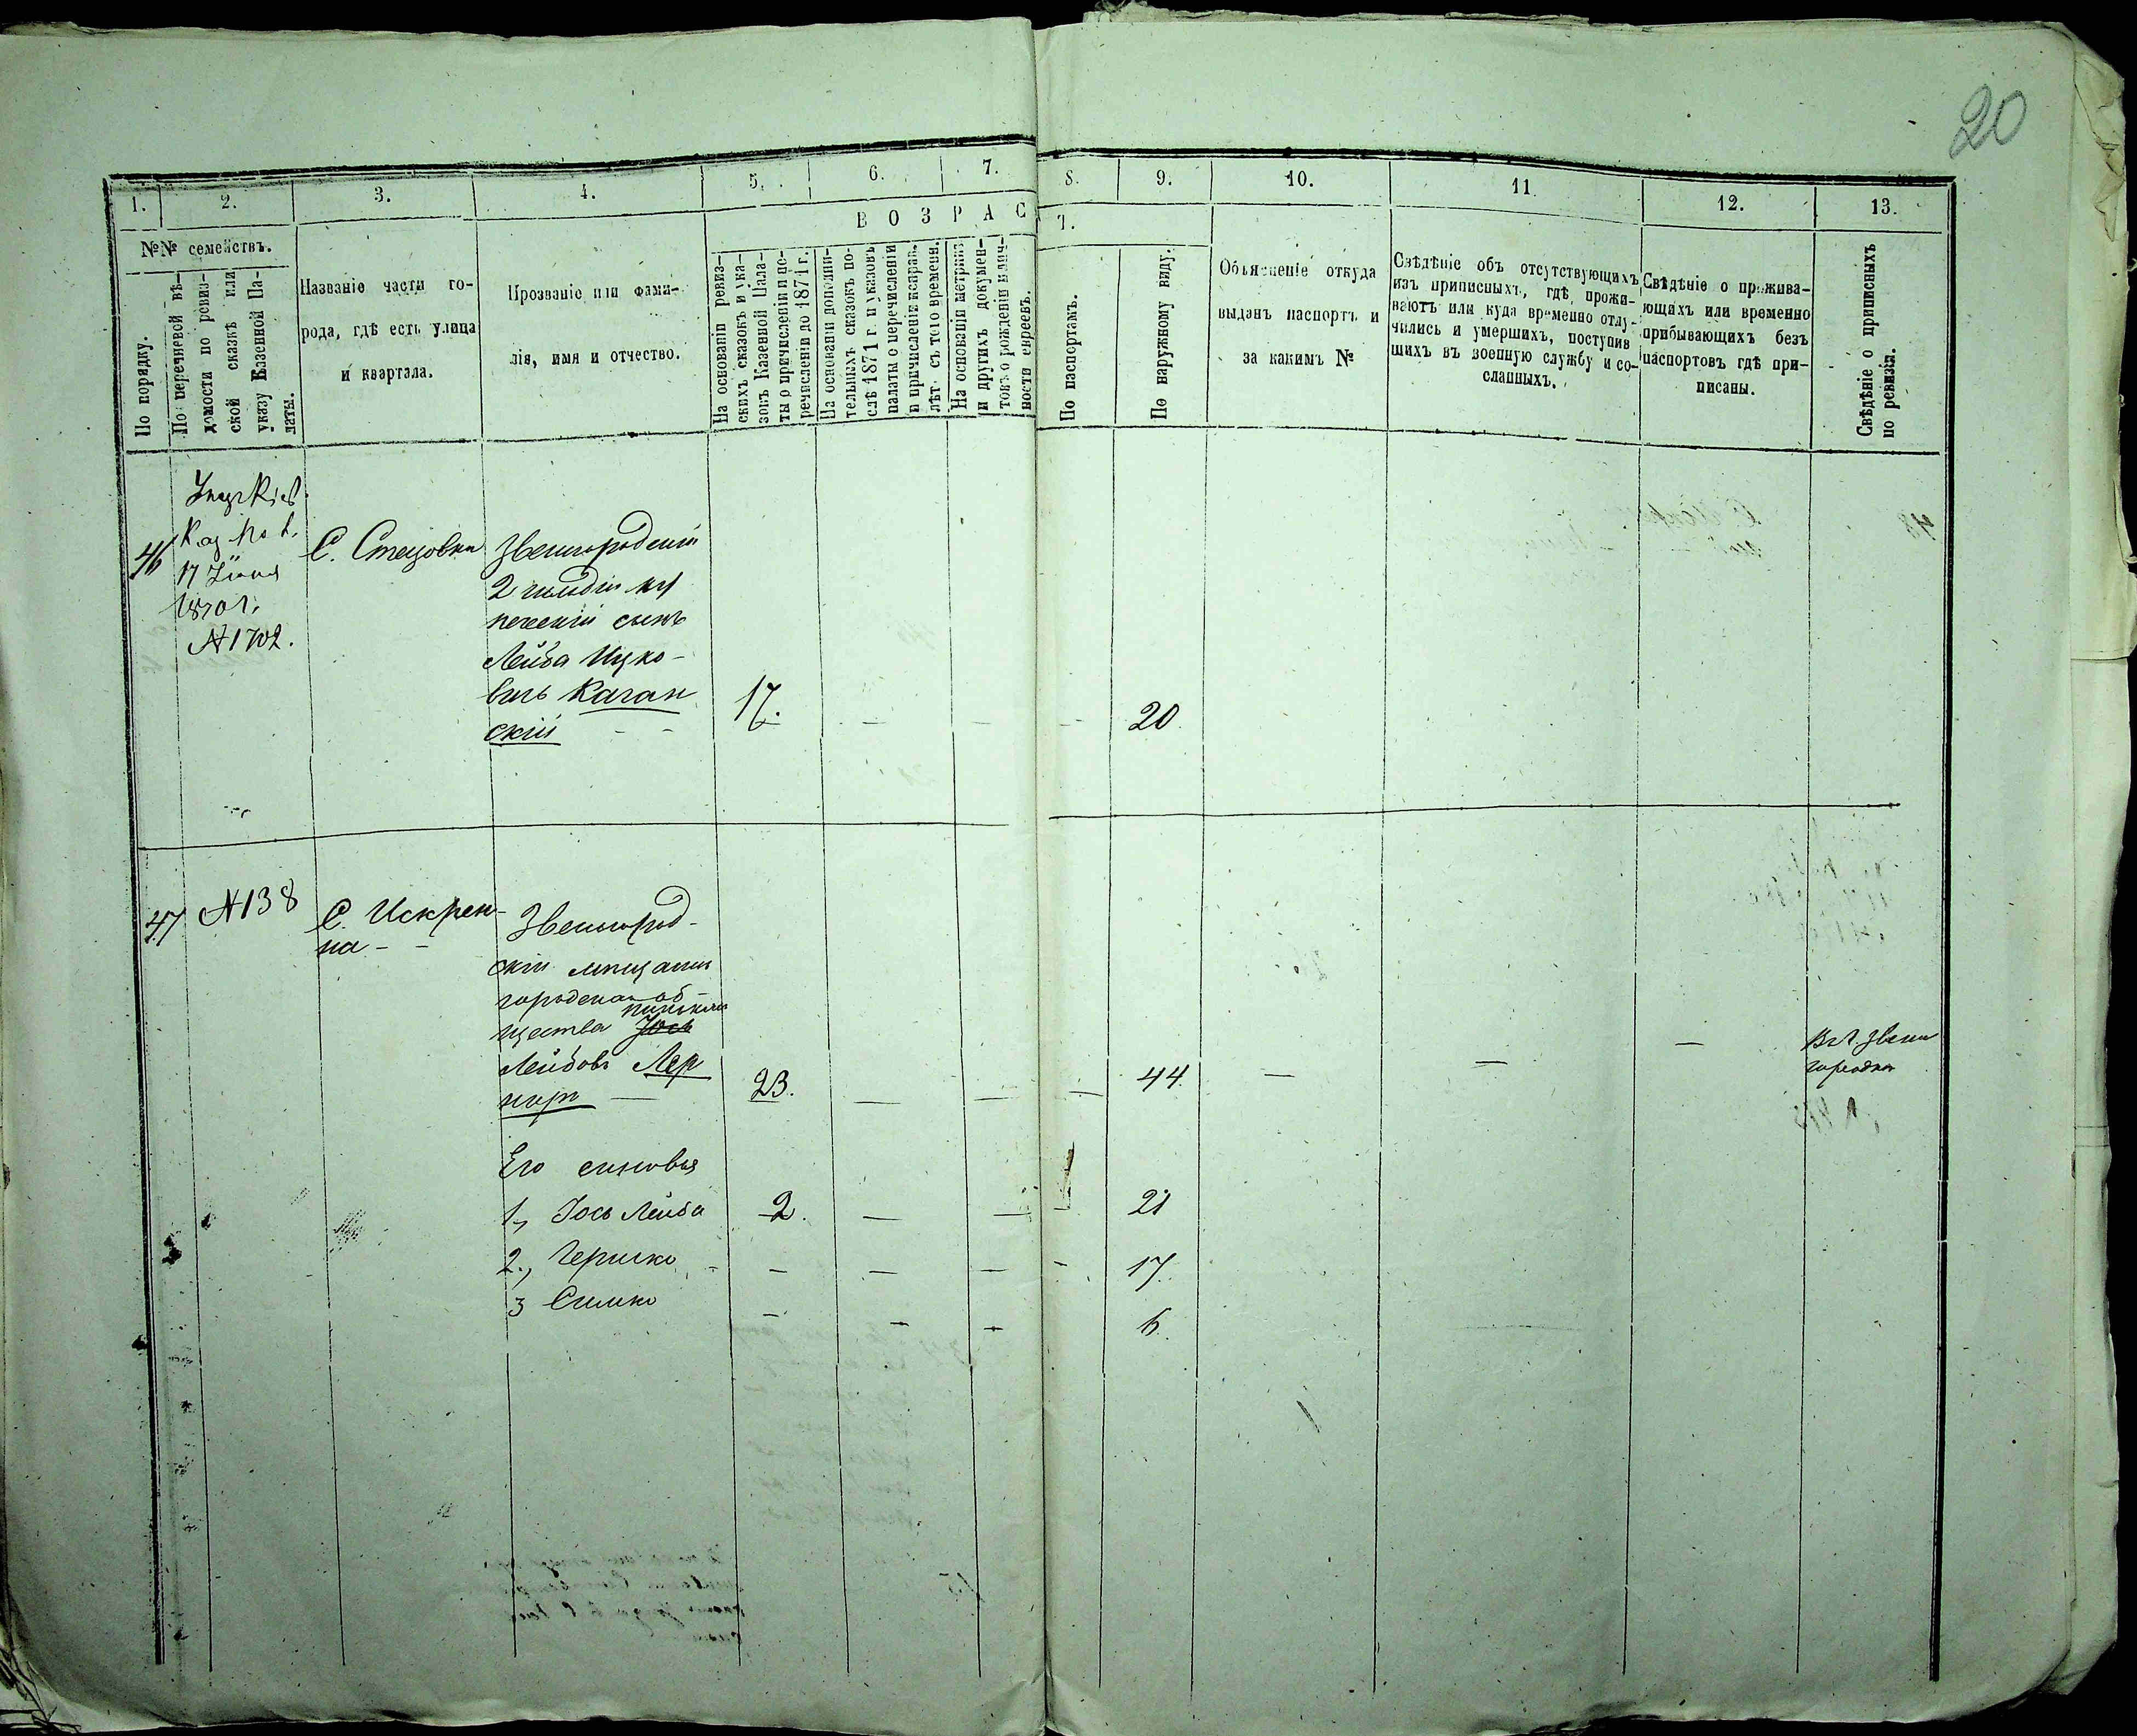 20
1.
2.
3.
4.
5.
6.
7.
8.
9.
10.
11.
12.
13.
№№ семействъ.
По порядку.
По перечневой вѣ-
домости по ревиз-
ской сказкѣ или
указу Казенной Па-
латы.
Названіе части го-
рода, гдѣ есть улица
и квартала.
Прозваніе или фами-
лія, имя и отчество.
ВОЗРАС
Т.
На основаніи ревиз-
скихъ сказокъ и ука-
зовъ Казенной Пала-
ты о причисленіи и пе-
речисленіи до 1871 г.
На основаніи дополни-
тельныхъ сказокъ по-
слѣ 1871 г. и указовъ
палаты о перечисленіи
и причисленіе исправ.
лѣт. съ того времени.
На основаніи метрикъ
и другихъ докумен-
товъ о рожденіи
ности евреевъ.
По паспортамъ.
По наружному виду.
Объясненіе откуда
выданъ паспортъ и
за какимъ №
Свѣдѣніе объ отсутствующихъ
изъ приписныхъ, гдѣ прожи-
ваютъ или куда временно отлу-
чились и умершихъ, поступив
шихъ въ военную службу и со-
сланныхъ.
Свѣдѣніе о прожива-
ющихъ или временно
прибывающихъ безъ
паспортовъ гдѣ при-
писаны.
Свѣдѣніе о приписныхъ
по ревизіи.
46
Каз
17 Іюня
1870 г.
№ 1702.
С. Стецовка
Звенигородскій
2 гильдіи ку
печескій сынъ
Лейба Ицко-
вичъ Каган
скій - -
17.
—
—
—
20
47
№ 138
С. Искрен-
на - -
Звенигород-
скій мѣщанин
городскаго об-
щества Іось
Лейбовъ Лер
неръ —
23.
—
—
—
44
—
—
—
В г. Звени
городка
Его сыновья
1, Іось Лейба
2.
—
—
—
21
2., Гершко
—
—
—
-
17.
3 Симко
—
—
—
6.